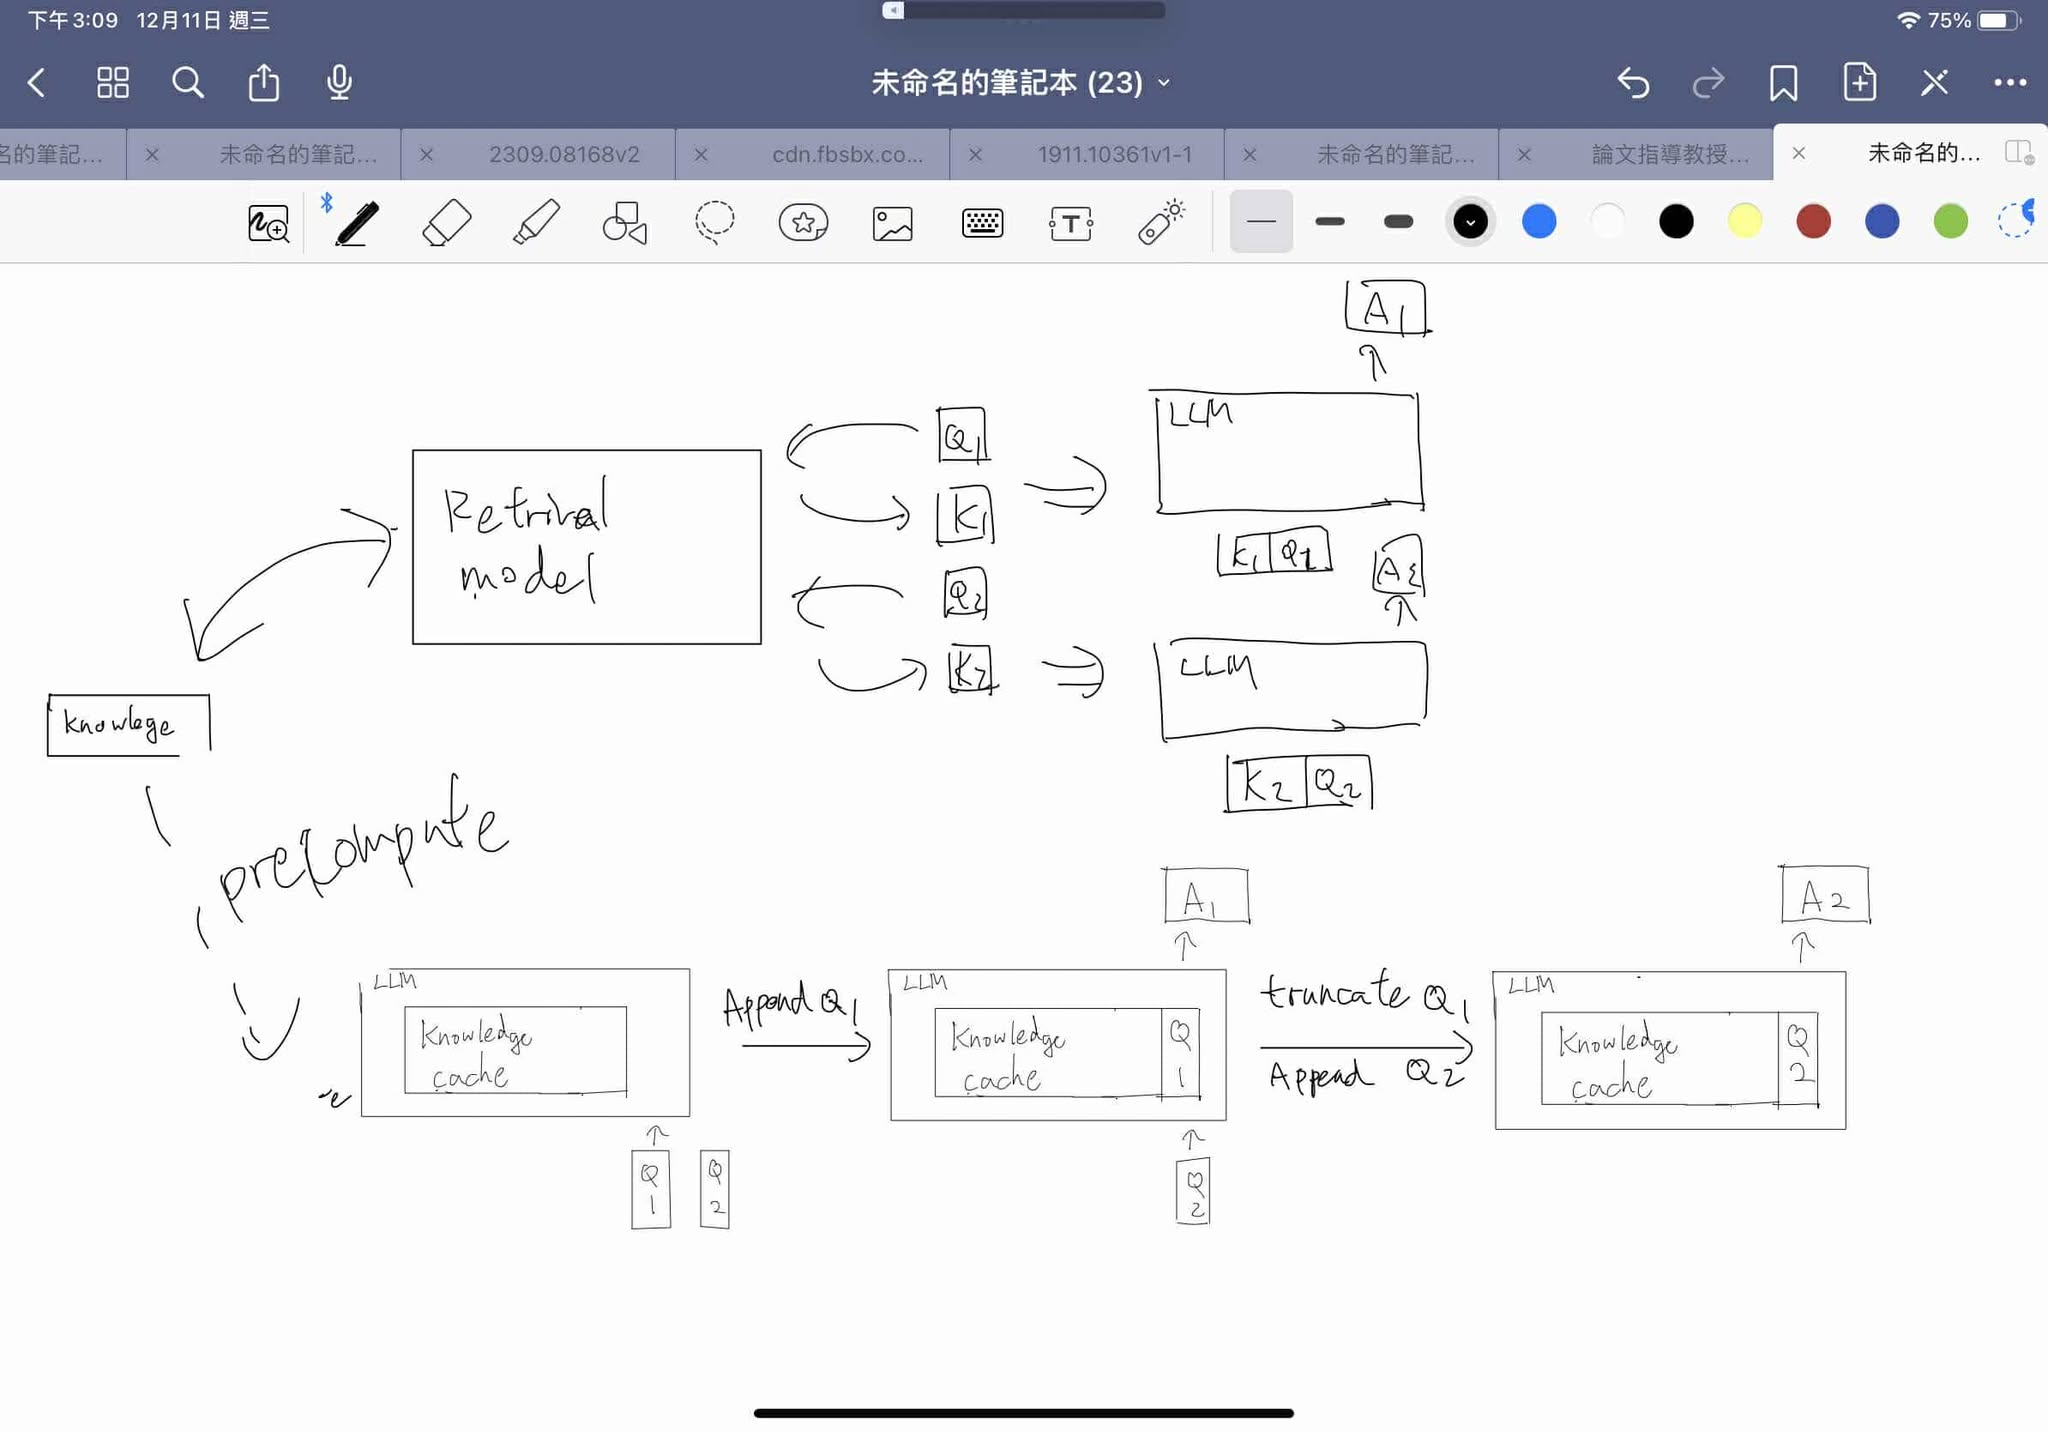 下午3:09 12月11日 週三
75%
未命名的筆記本 (23)
名的筆記...
未命名的筆記...
2309.08168v2
cdn.fbsbx.co...
1911.10361v1-1
未命名的筆記...
論文指導教授...
未命名的...
T
A1
LLM
Q1
Retrival
model
K1
K1 Q1
A2
Q2
K2
LLM
Knowlege
K2 Q2
precompute
A1
A2
LLM
Knowledge
cache
Append Q1
LLM
Knowledge
cache
Q
1
truncate Q1
Append Q2
LLM
Knowledge
cache
Q
2
Q
1
Q
2
Q
2